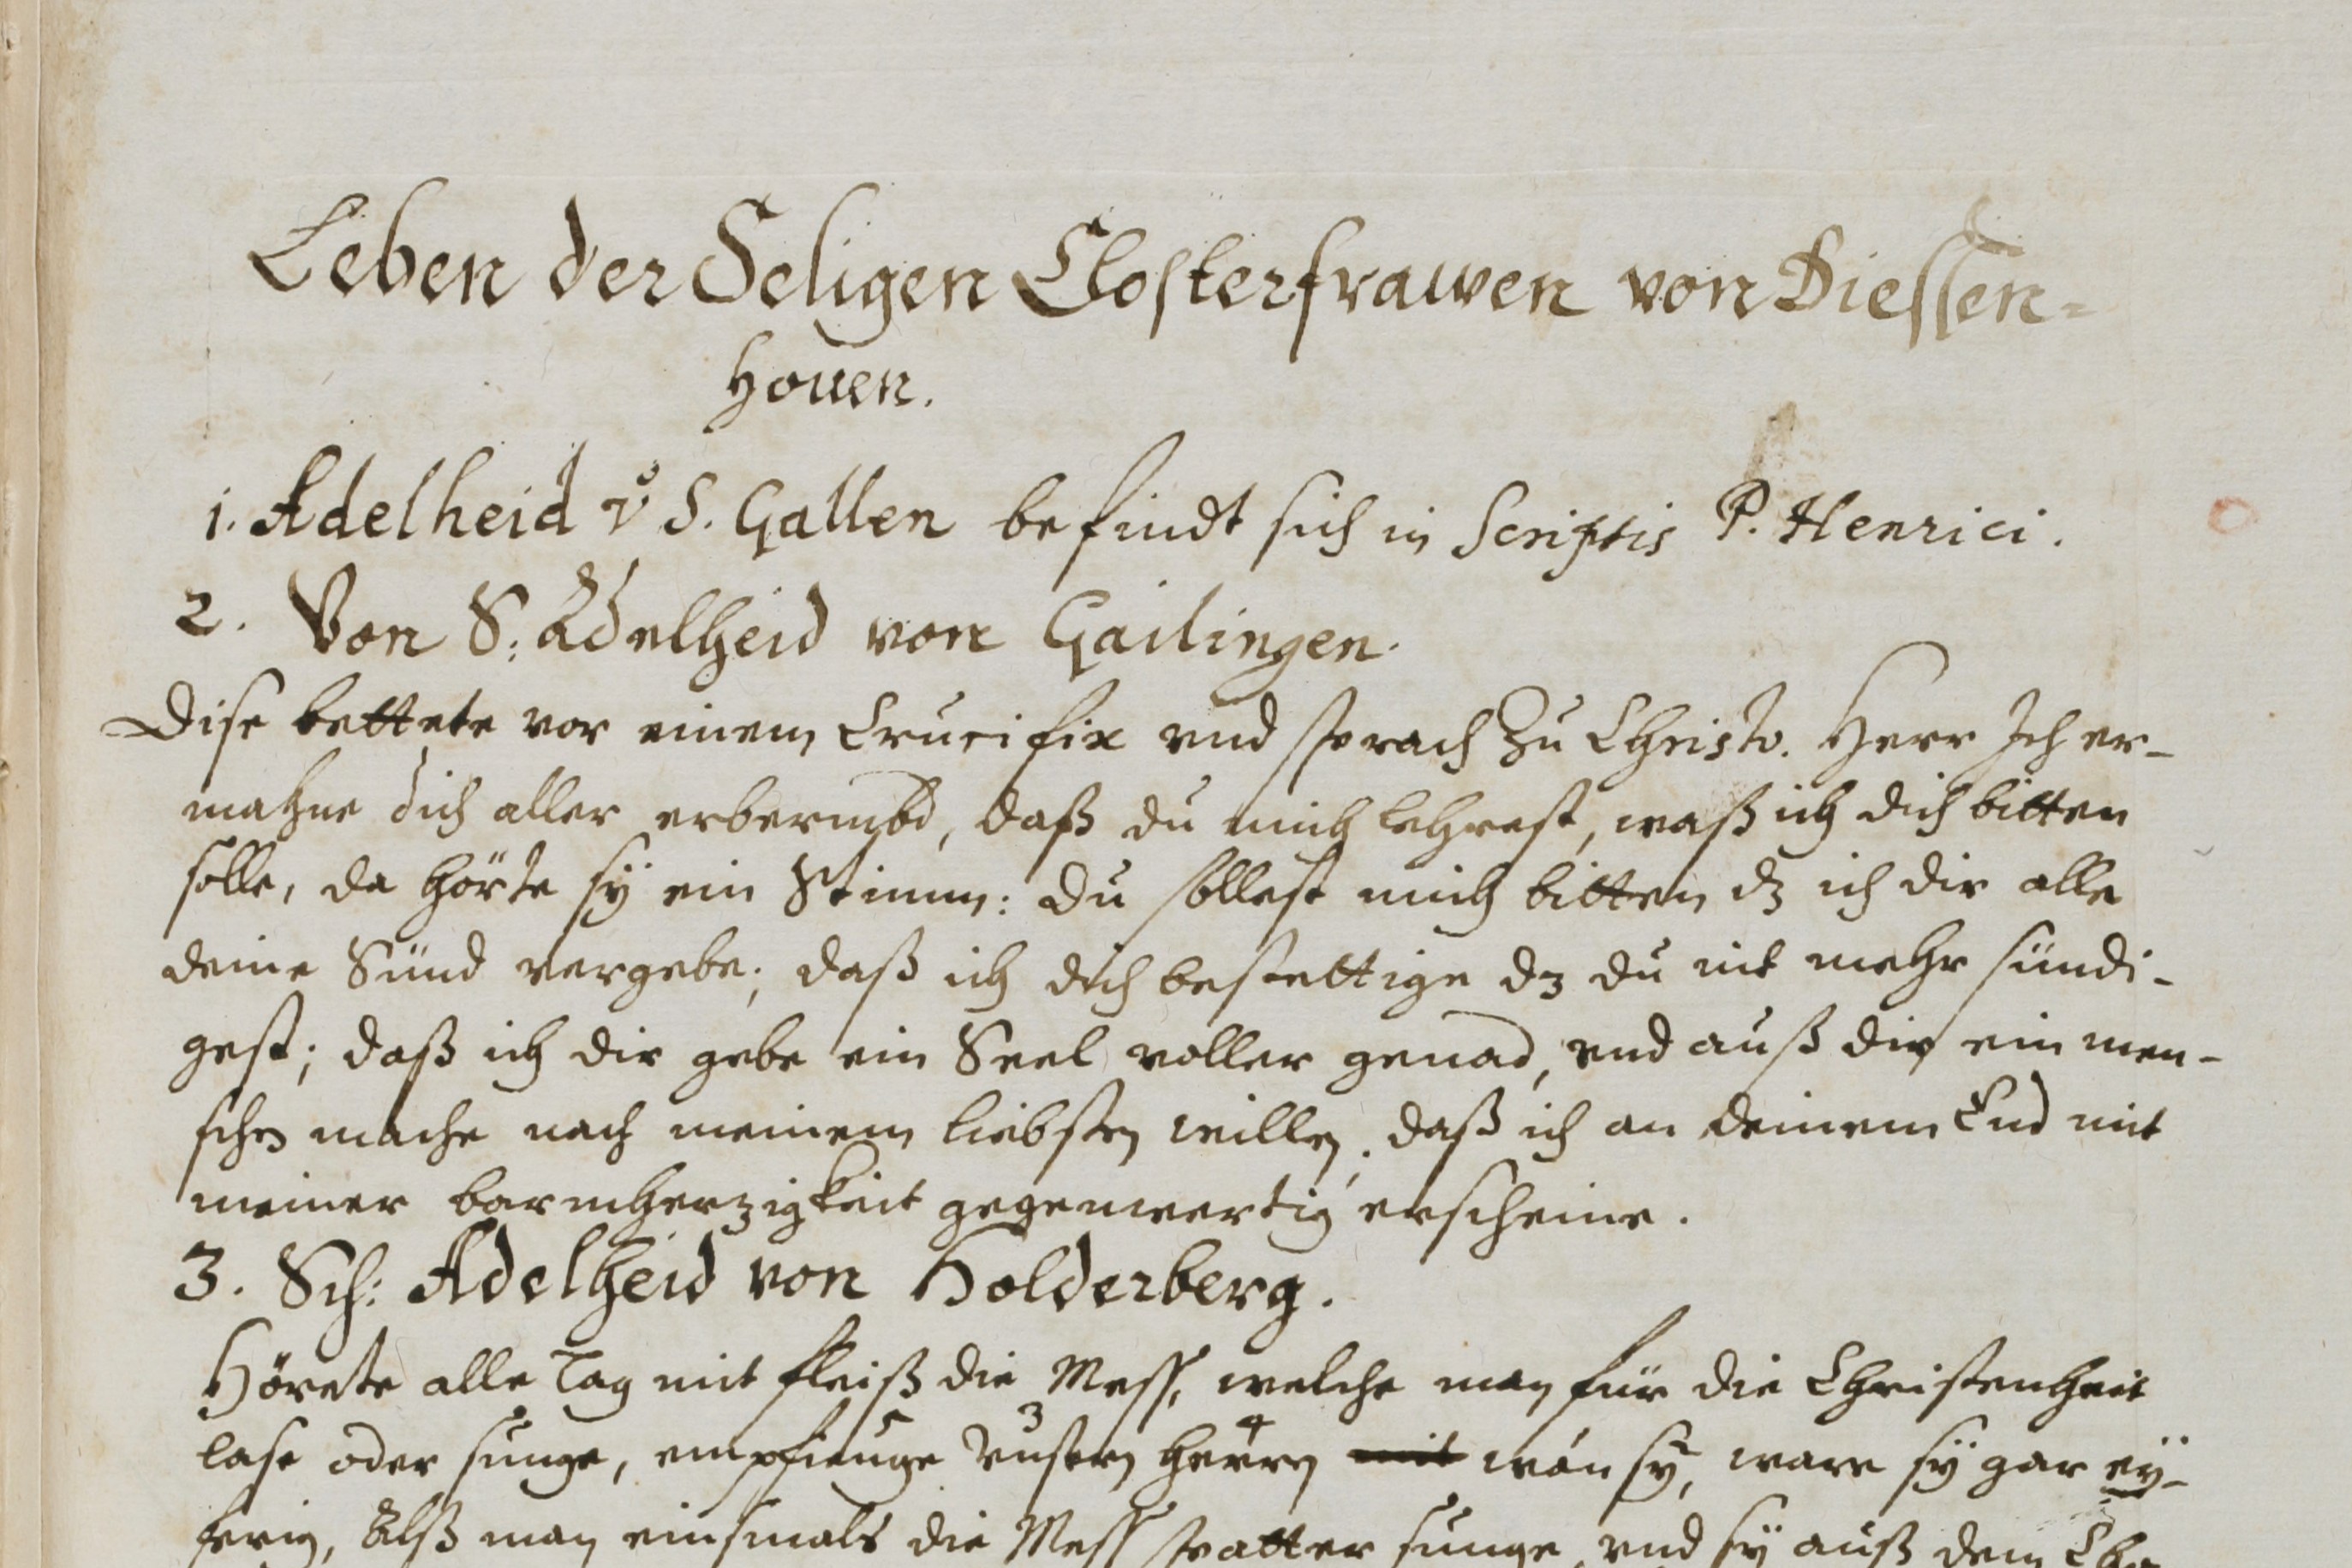 Leben der Seligen Closterfrawen von Diessen-
houen.
1. Adelheid v̊ S. Gallen befindt sich in Scriptis P. Henrici.
2. Von S: Adelheid von Gailingen.
Dise bettete vor einem Crucifix vnd sprach zu Christo. Herr Ich er-
mahne dich aller erbermbd, daß du mich lehrest, waß ich dich bitten
solle, da hörte sÿ ein Stimm: du sollest mich bitten dz ich dir alle
deine Sünd vergebe; daß ich dich bestettige dz du nit mehr sündi-
gest; daß ich dir gebe ein Seel voller genad, vnd auß dir ein men-
schen mache nach meinem liebsten willen; daß ich an deinem End mit
meiner barmherzigkeit gegenwertig erscheine.
3. Sch: Adelheid von Holderberg.
Hörete alle Tag mit fleiß die Mess, welche man für die Christenheit
lase oder sunge, empfienge 3 vnsern 4 herrn mit wan sÿ, ware sÿ gar eÿ-
ferig, Alß man einsmals die Mess spatter sunge, vnd sÿ auß dem